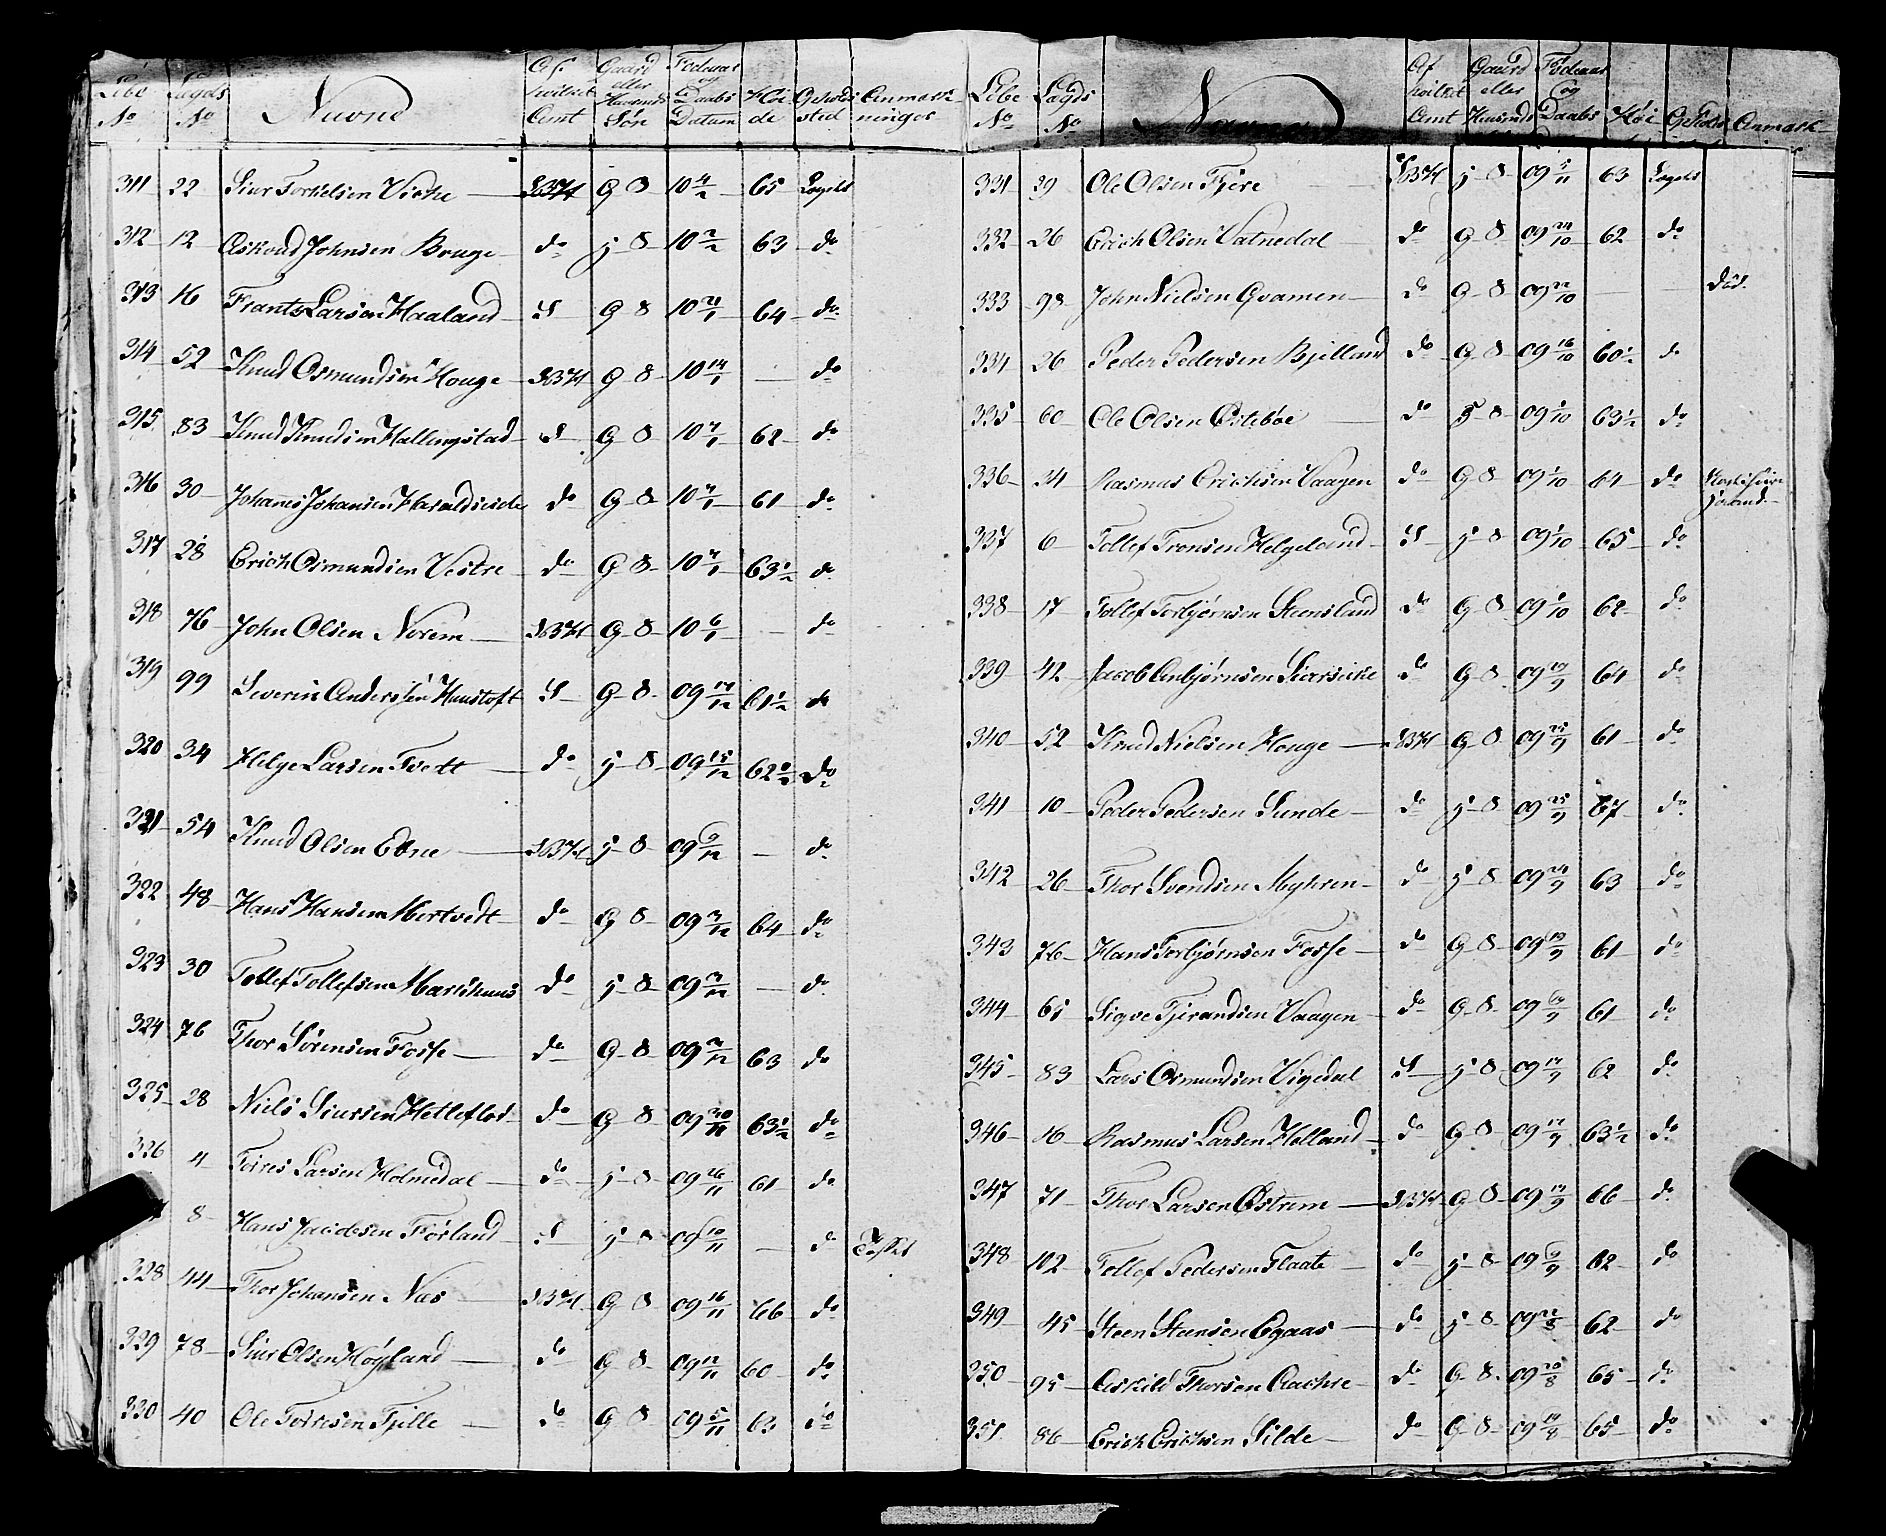 Løbe No Lagds No Navne Af hvilket Amt Gaard eller Huusm: Søn Fødeaar og Daabs Datum Høide Opholds sted Anmærkninger
311 22 Siur Torkelsen Viche G S 10 4/2 65 Lagdet
312 12 Askoud Johnsen Bouge do j S 10 2/2 63 do
313 16 Frants Larsen Haaland S G S 10 21/1 64 do
314 52 Knud Osmundsen Houge G S 10 14/1 — do
315 83 Knud Knudsen Hallingstad S G S 10 7/1 62 do
316 30 Johanes Johansen Haraldseide do G S 10 7/1 61 do
317 28 Erich Osmundsen Vestre do G S 10 7/1 63 1/2 do
318 76 John Olsen Norem G S 10 6/1 — do
319 99 Severin Andersen Hunstoft S G S 09 17/12 61 1/2 do
320 34 Helge Larsen Tvedt do j S 09 15/12 62 1/2 do
321 54 Knud Olsen Edne j S 09 9/12 — do
322 48 Hans Hansen Mortvedt do G S 09 3/12 64 do
323 30 Tollef Tollefsen Markhuus do j S 09 3/12 — do
324 76 Thor Sørensen Fosse do G S 09 3/12 63 do
325 28 Niels Siursen Hetleflot do G S 09 30/11 63 1/2 do
326 4 Torres Larsen Holmedal do j S 09 26/11 61 do
8 Hans Jacobsen Førland S j S 09 10/11 — do
328 44 Thor Johansen Næs G S 09 16/11 66 do
329 78 Siur Olsen Høyland do G S 09 12/11 60 do
330 40 Ole Torresen Tjille do G S 09 5/11 63 do
Løbe No Lagds No Navne Af hvilket Amt Gaard eller Huusmds Fødeaar Og Daabs Høi Opholds Anmærk
331 39 Ole Olsen Fjere j S 09 5/11 63 Lagdet
332 26 Erich Olsen Vatnedal do G S 09 24/10 62 do
333 98 John Nielsen Qvamen do G S 09 22/10 — Död.
334 26 Peder Pedersen Bjelland do G S 09 16/10 60 1/2 do
335 60 Ole Olsen Østebøe do j S 09 1/10 63 1/2 do
336 34 Rasmus Erichsen Vaagen do G S 09 1/10 64 do
337 6 Tollef Tronsen Helgeland S j S 09 1/10 65 do
338 17 Tollef Torbjørnsen Steensland do G S 09 1/10 62 do
339 42 Jacob Anbjørnsen do G S 09 19/9 64 do
340 52 Knud Nielsen Houge G S 09 25/9 61 do
341 10 Peder Pedersen Sunde do j S 09 25/9 67 do
342 26 Thor Svendsen Myhren do j S 09 24/9 63 do
343 76 Hans Torbjørnsen Fosse do G S 09 19/9 61 do
344 65 Sigve Tjerandsen Vaagen do G S 09 61 do
345 83 Lars Osmundsen Vigedal S j S 09 17/9 62 do
346 16 Rasmus Larsen Helland do G S 09 17/9 63 1/2 do
347 71 Thor Larsen Østrem G S 09 17/9 66 do
348 102 Tollef Pedersen Flaate do j S 09 9/9 62 do
349 45 Steen Steensen Egaas do j S 09 22/8 62 do
350 95 Askild Thorsen Aachre do G S 09 20/8 65 do
351 86 Erich Erichsen Silde do G S 09 14/8 65 do